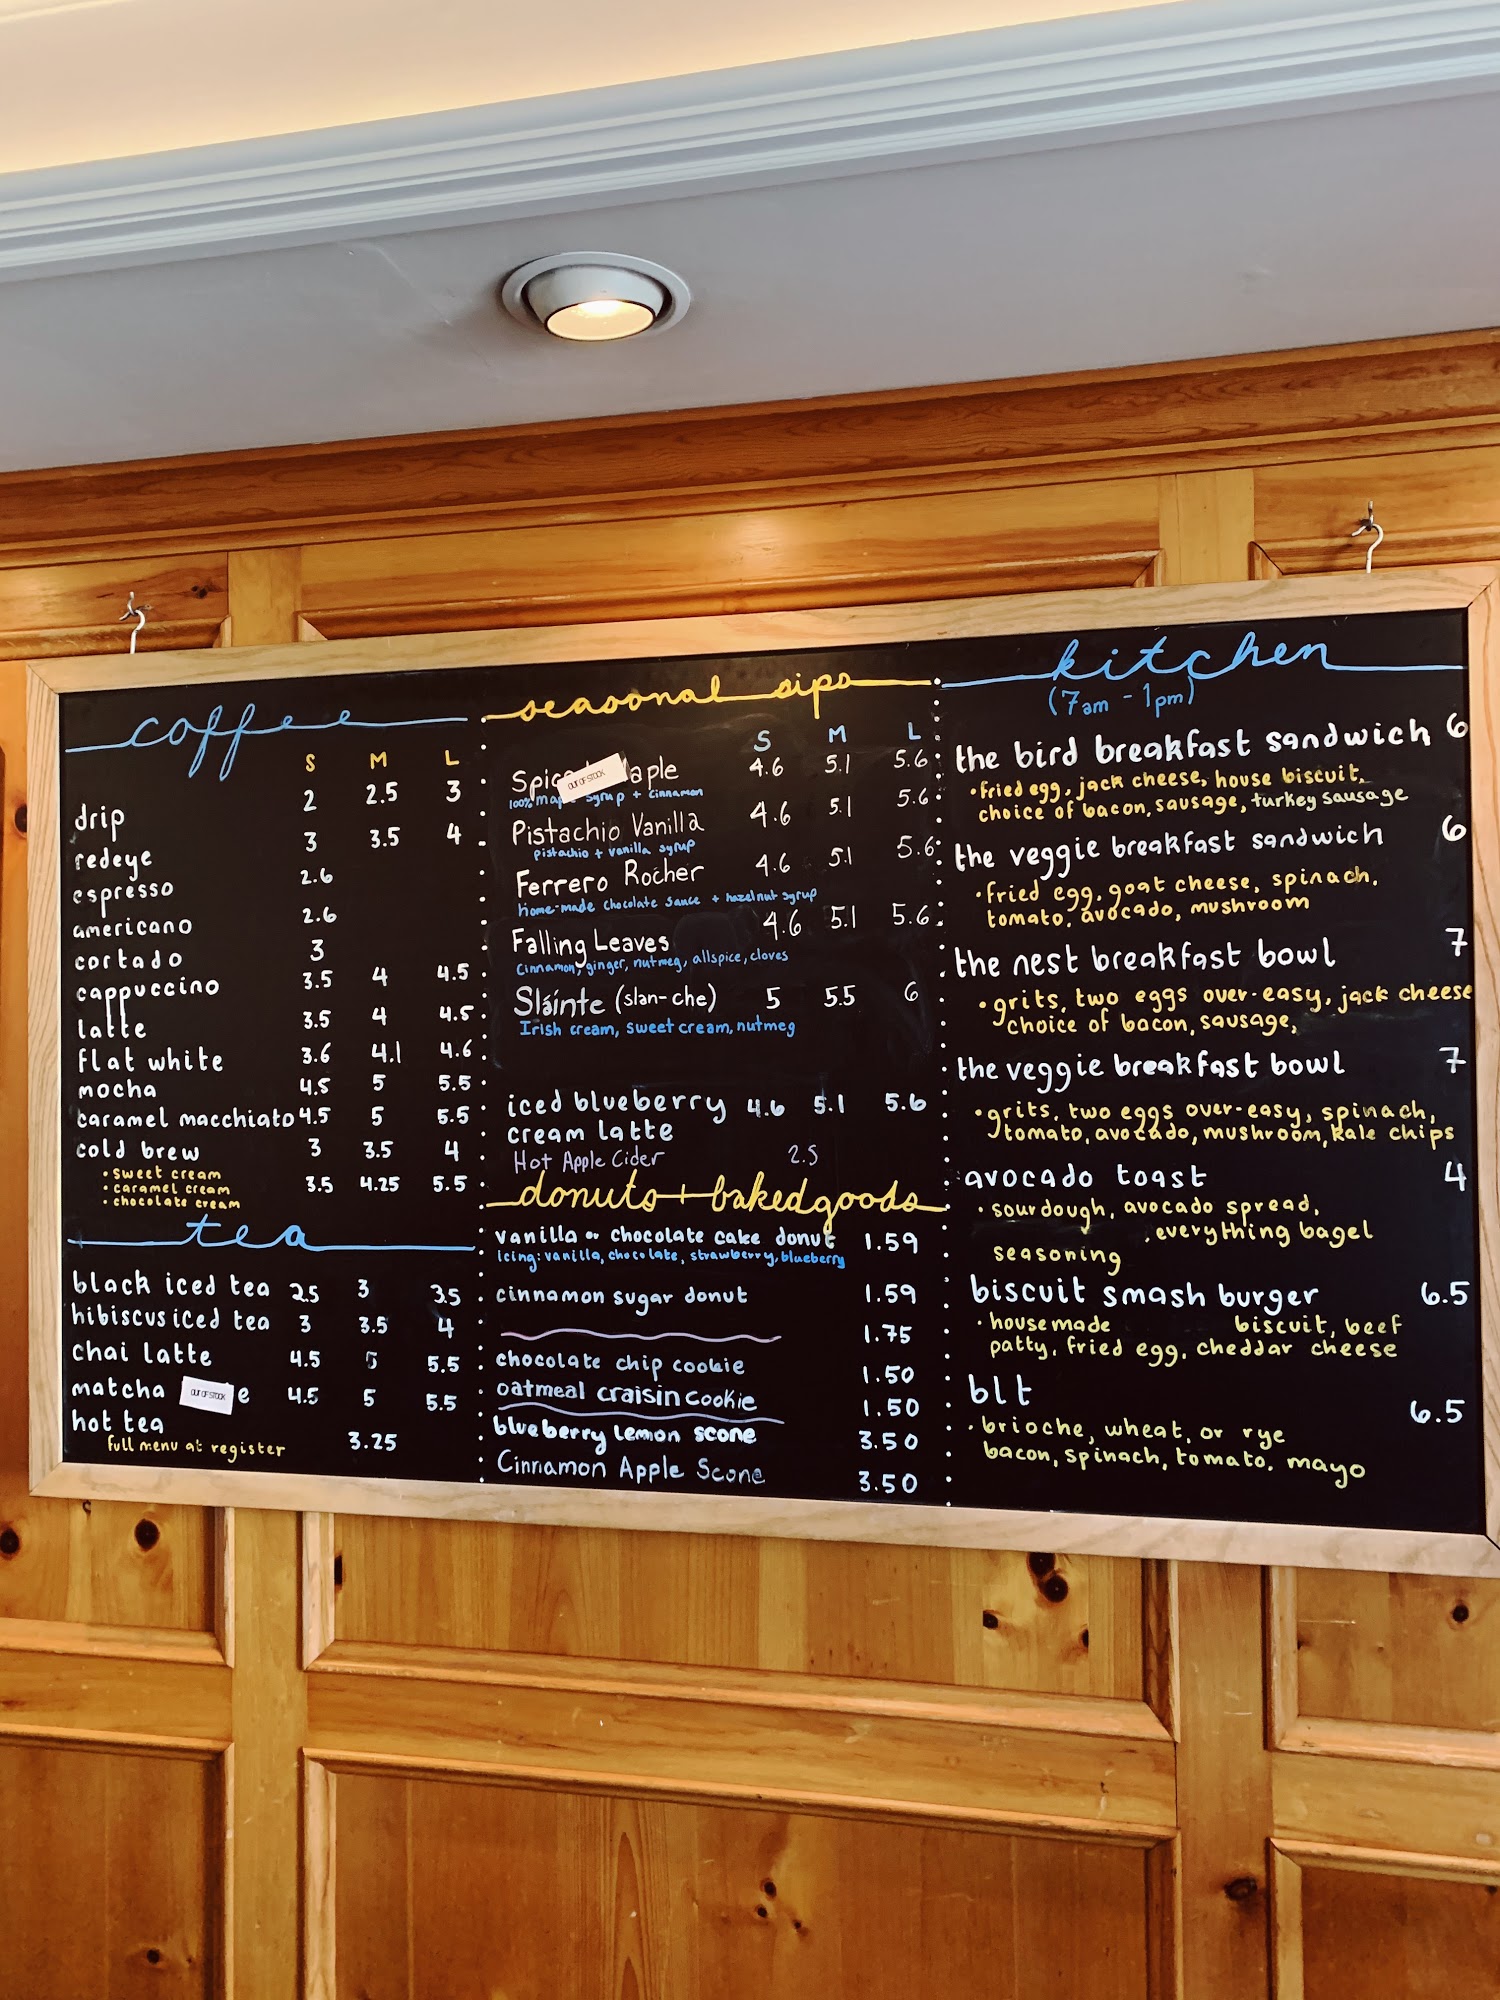 coffee
S M L
drip 2 2.5 3
redeye 3 3.5 4
espresso 2.6
americano 2.6
cortado 3
cappuccino 3.5 4 4.5
latte 3.5 4 4.5
flat white 3.6 4.1 4.6
mocha 4.5 5 5.5
caramel macchiato 4.5 5 5.5
cold brew 3 3.5 4
• sweet cream
• caramel cream 3.5 4.25 5.5
• chocolate cream
tea
black iced tea 2.5 3 3.5
hibiscus iced tea 3 3.5 4
chai latte 4.5 5 5.5
matcha OUT OF STOCK e 4.5 5 5.5
hot tea 3.25
full menu at register
seasonal sips
S M L
Spice OUT OF STOCK aple 4.6 5.1 5.6
100% map syrup + cinnamon
Pistachio Vanilla 4.6 5.1 5.6
pistachio + vanilla syrup
Ferrero Rocher 4.6 5.1 5.6
home-made chocolate sauce + hazelnut syrup
Falling Leaves 4.6 5.1 5.6
Cinnamon, ginger, nutmeg, allspice, cloves
Sláinte (slan-che) 5 5.5 6
Irish cream, sweet cream, nutmeg
iced blueberry 4.6 5.1 5.6
cream latte
Hot Apple Cider 2.5
donuts + baked goods
vanilla or chocolate cake donut 1.59
icing: vanilla, chocolate, strawberry, blueberry
cinnamon sugar donut 1.59
1.75
chocolate chip cookie 1.50
oatmeal craisin cookie 1.50
blueberry lemon scone 3.50
Cinnamon Apple Scone 3.50
kitchen
(7am - 1pm)
the bird breakfast sandwich 6
• fried egg, jack cheese, house biscuit,
choice of bacon, sausage, turkey sausage
the veggie breakfast sandwich 6
• fried egg, goat cheese, spinach,
tomato, avocado, mushroom
the nest breakfast bowl 7
• grits, two eggs over-easy, jack cheese
choice of bacon, sausage,
the veggie breakfast bowl 7
• grits, two eggs over-easy, spinach,
tomato, avocado, mushroom, kale chips
avocado toast 4
• sourdough, avocado spread,
, everything bagel
seasoning
biscuit smash burger 6.5
• housemade biscuit, beef
patty, fried egg, cheddar cheese
blt 6.5
• brioche, wheat, or rye
bacon, spinach, tomato, mayo